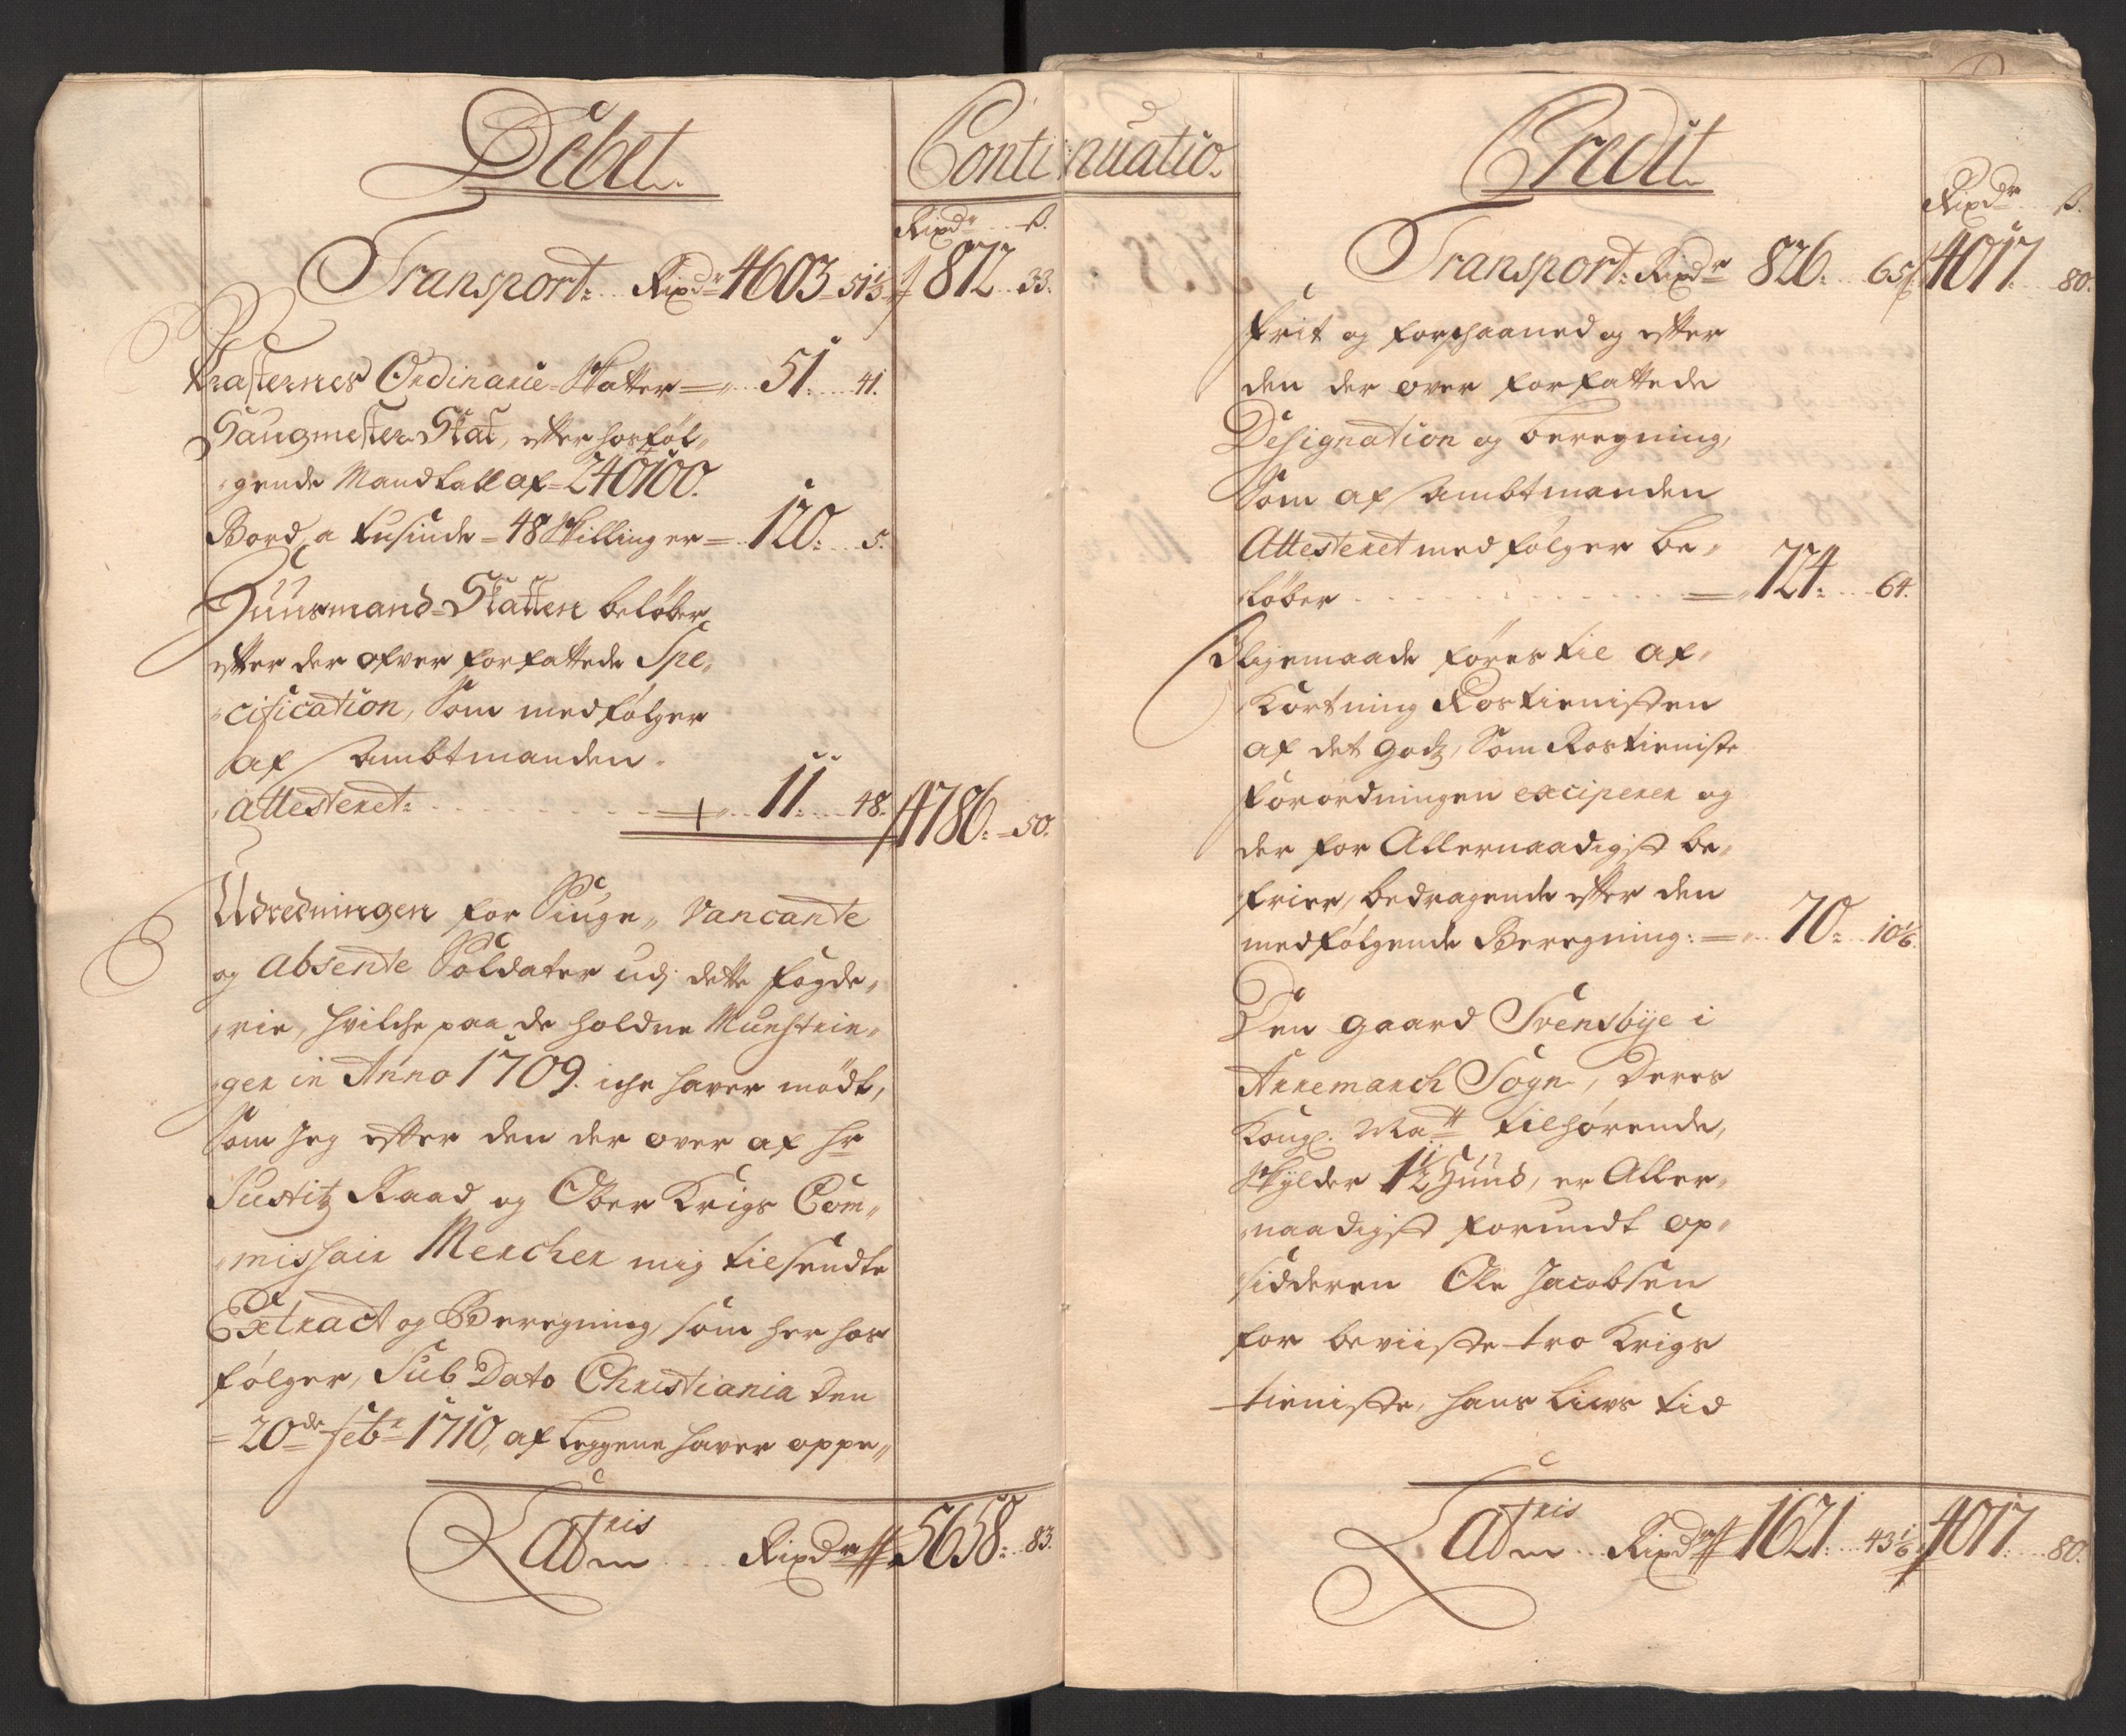 Debet
Continuatio.
Rixdr ß.
Transport: Rixdr 4603 - 51⅓ 872 .. 33.
Præsternes Ordinarie Skatter = 51: 41.
Saugmester Skat, efter hosføl,,
,,gende Mandtall af = 240100.
Bord a tusinde = 48 Skillinger = 120: 5.
Huusmand = Skatten beløber
efter der ofver forfattede Spe,,
,,cification, Som medfølger
af ambtmanden
attesteret: 11: 48. 4786: 50.
Udredningen for Siuge,, Vancante
og absente Soldater udj dette fogde,,
,,rie, hvilche paa de holdne Munstrin,,
,,ger in Anno 1709. iche haver mödt,
Som Jeg efter den der over af hr
Justitz Raad og Ober Krigs Com,,
,,missair Mercher mig tilsendte
Extract og Beregning, som her hos
følger, Sub Dato Christiania den
= 20de Febr 1710, af Leggene haver oppe,,
Latris Rixdr 5658: 83.
Credit
Rixdr ß.
Transport: Rixdr 826: 65 4017 80.
frit og forschaaned og efter
den der over forfattede
Designation og beregning,
Som af ambtmanden
Attesteret medfølger be,,
løber = 724: 64.
Ligemaade føres til af,,
Kortning Rostienisten
af det godz, Som Rostieniste
forordningen exciperer og
der for Allernaadigst be,,
frier, bedragende efter den
medfølgende Beregning: = 70: 10⅙.
Den gaard Svensbye i
Annemarch Sogn, Deres
Kongl: Maytt tilhørende,
Skylder 1½ Huud, er Aller,,
,,naadigst forundt op,,
sidderen Ole Jacobsen
for beviiste tro Krigs
tieniste, hans Liivs tid
Latris Rixdr 1621: 43⅙ 4017 80.